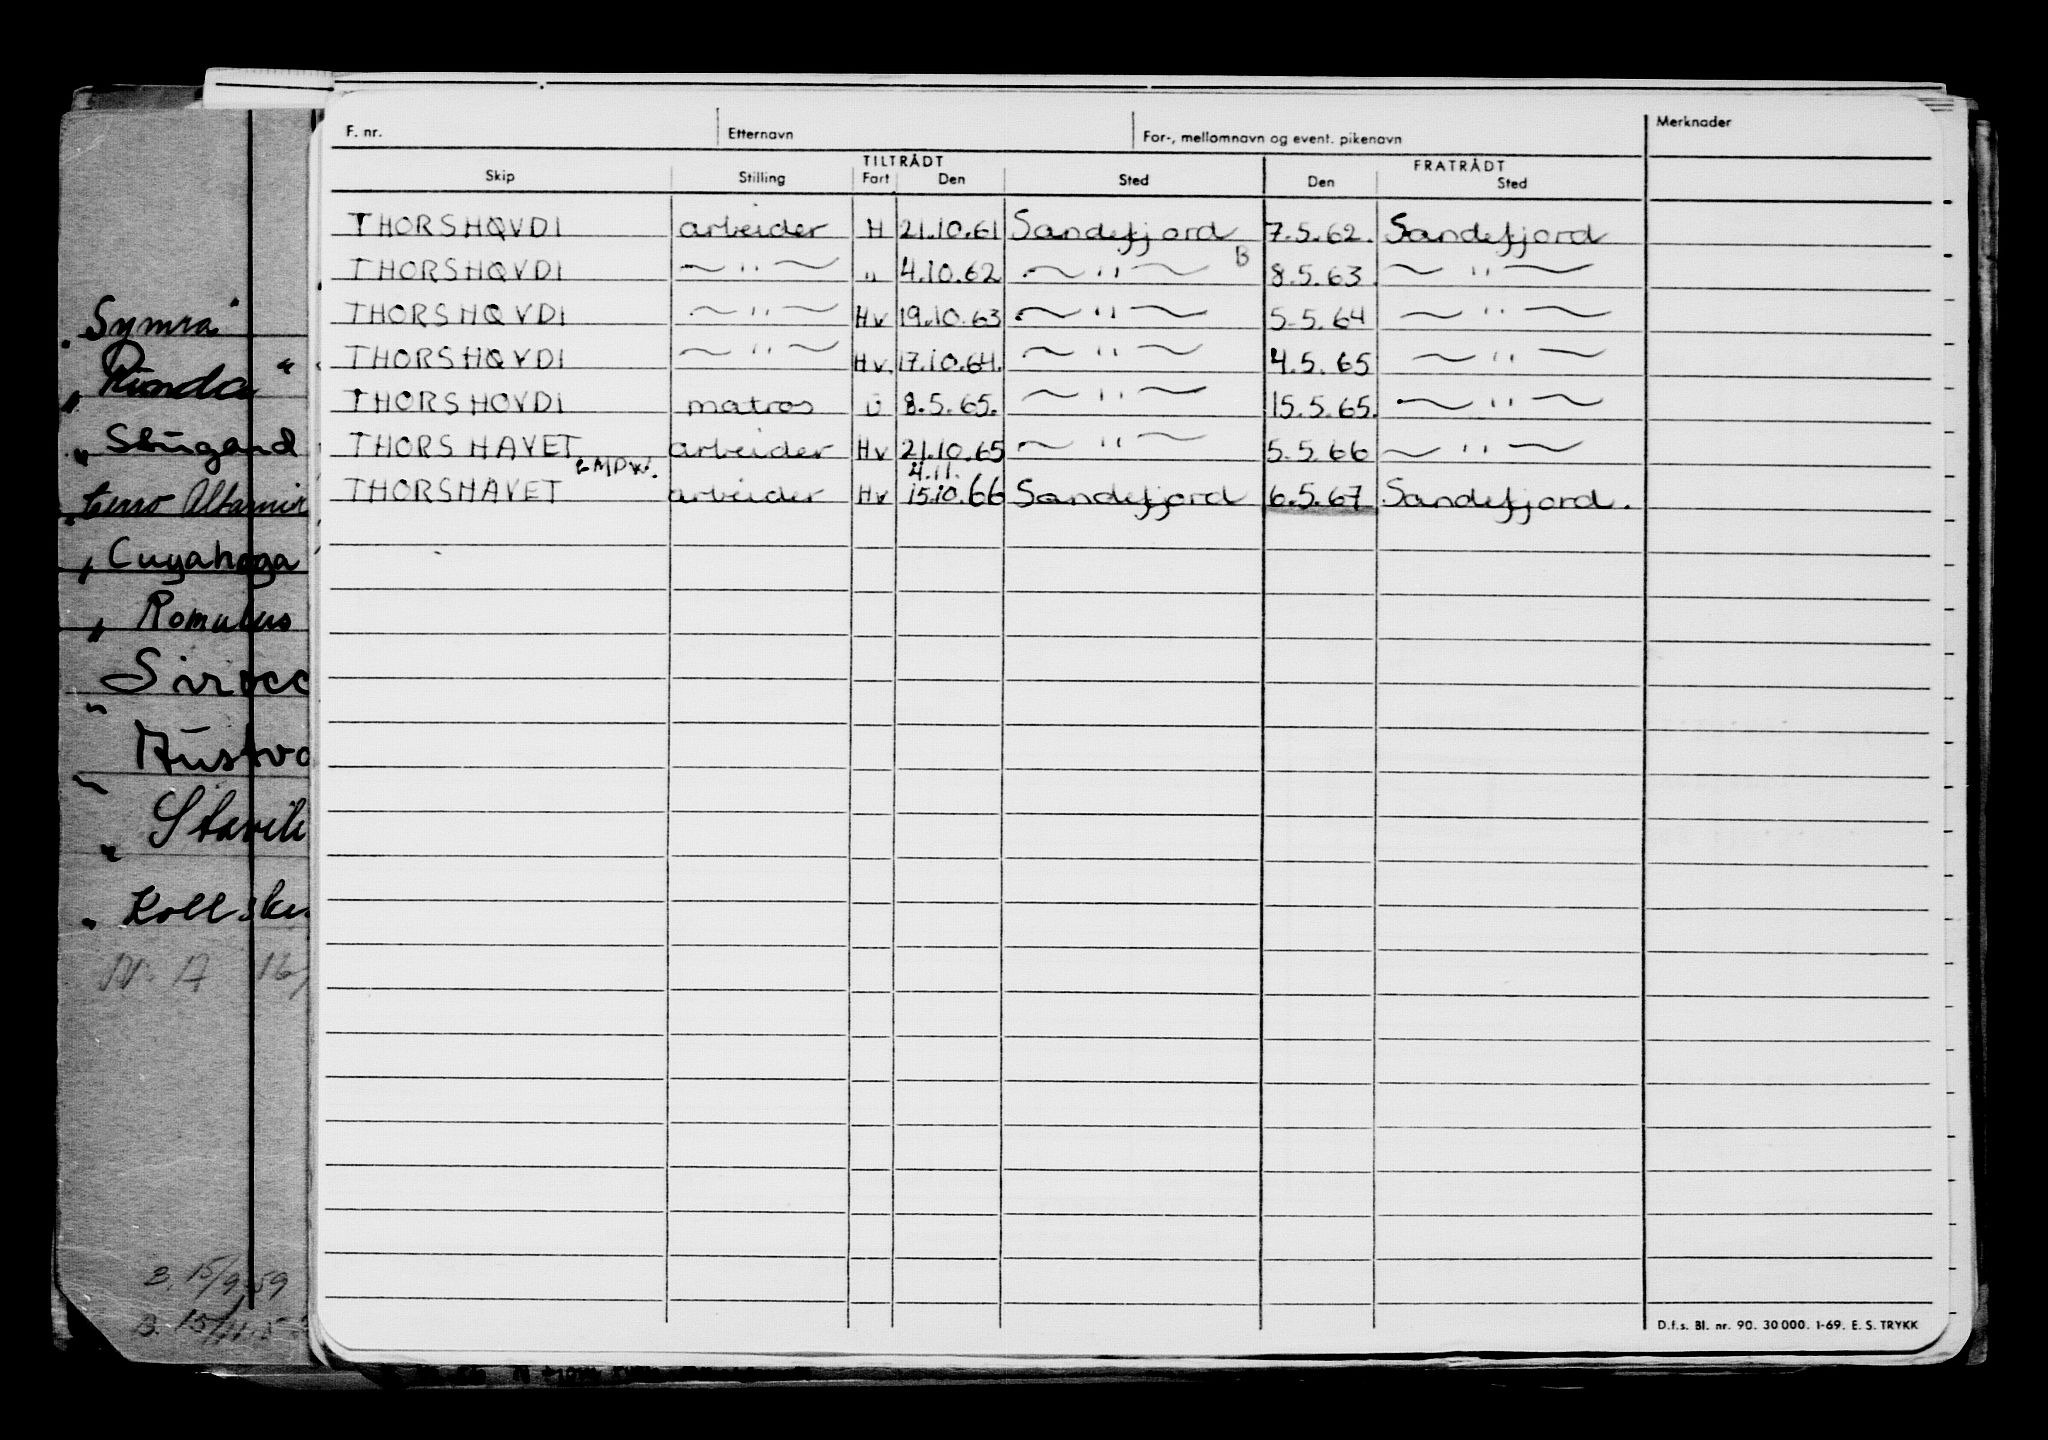 F. nr. Etternavn For-, mellomnavn og event. pikenavn Merknader
TILTRÅDT FRATRÅDT
Skip Stilling Fart Den Sted Den Sted
THORSHØVDI arbeider H 21.10.61 Sandefjord 7.5.62. Sandefjord
THORSHØVDI — " — " 4.10.62 — " — B 8.5.63 — " —
THORSHØVDI — " — Hv 19.10.63 — " — 5.5.64 — " —
THORSHØVDI — " — Hv. 17.10.64. — " — 4.5.65 — " —
THORSHOVDI matros U 8.5.65. — " — 15.5.65. — " —
THORSHAVET arbeider Hv 21.10.65 — " — 5.5.66 — " —
4.11.
THORSHAVET arbeider Hv 15.10.66 Sandefjord 6.5.67 Sandefjord.
Symra
" Runda "
" Stugard
" Cuyahoga
" Romulus
" Sirocc
"
"
"
16/
B. 15/9-59
B. 15/11-5
D.f.s. Bl. nr. 90. 30 000. 1-69. E. S. TRYKK